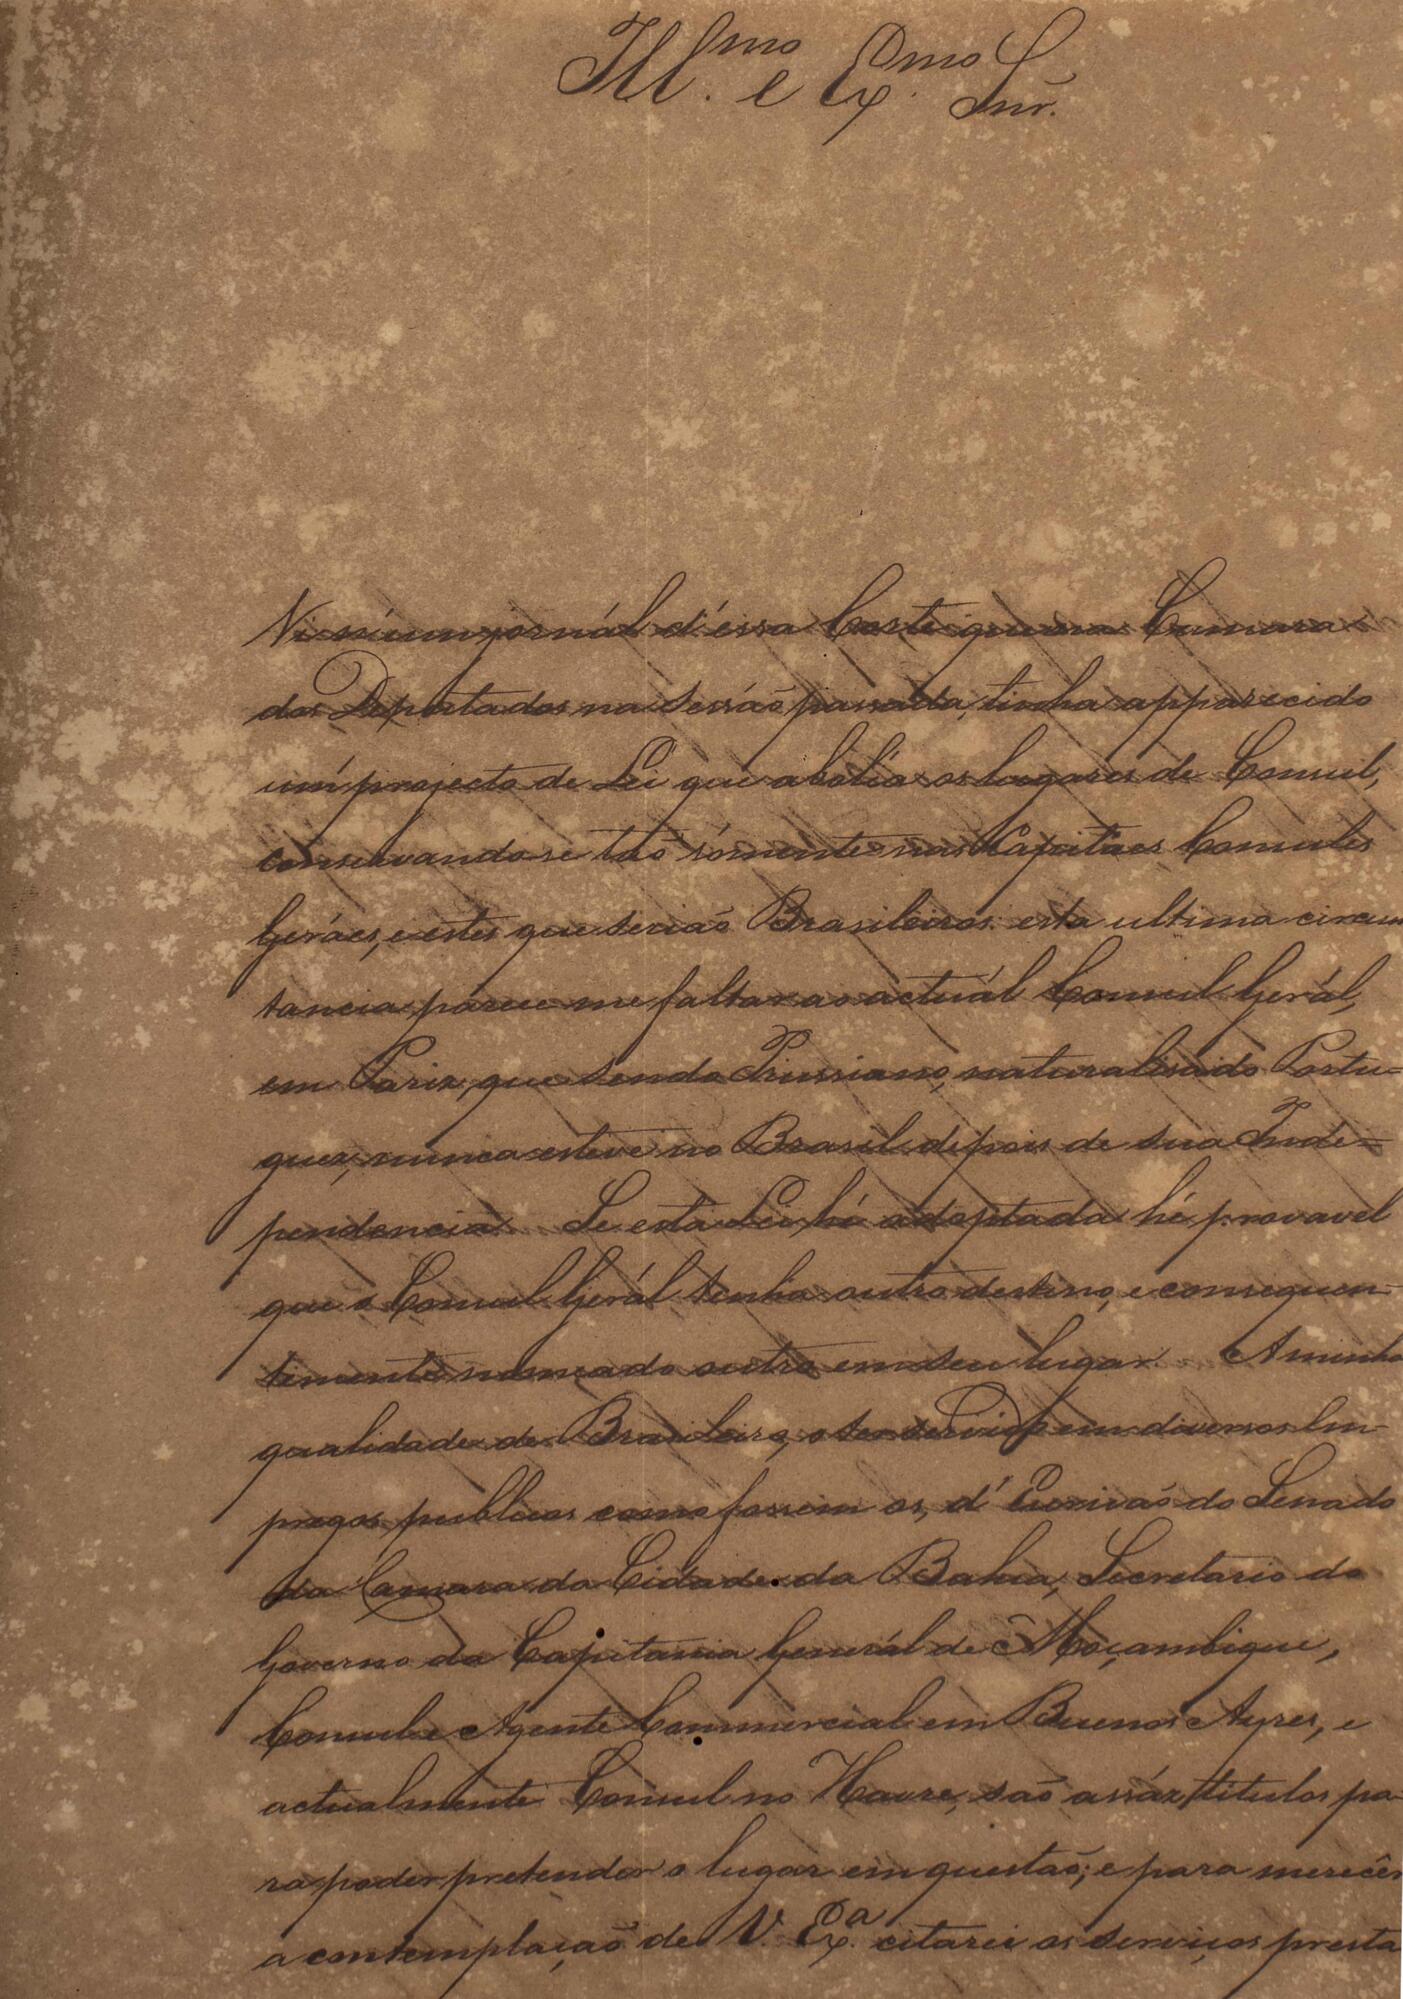 Ill.mo e Ex.mo Snr.
Vi em um jornál d'essa Corte que na Camara
dos Deputados na sessão passada, tinha apparecido
um projecto de Lei que abolia os lugares de Consul,
conservando-se tão sómente nas Capitaes Consules
Geráes, e estes que serião Brasileiros: esta ultima circuns
tancia parece me faltar ao actuál Consul Gerál,
em Pariz, que sendo Prussiano, naturalisado Portu-
guez, nunca esteve no Brasil depois de sua Inde=
pendencia. Se esta Lei hé adoptada hé provavel
que o Consul Gerál tenha outro destino, e consequen-
temente nomeado outro em seu lugar. A minha
qualidade de Brasileiro, o ter servido em diversos Em-
pregos publicos como fossem os, d'Escrivão do Senado
da Camara da Cidade da Bahia, Secretario do
Governo da Capitania Generál de Moçambique,
Consul e Agente Commercial em Buenos Ayres, e
actualmente Consul no Havre, são assáz titulos pa-
ra poder pretender o lugar em questão; e para merecêr
a contemplação de V. Ex.a citarei os serviços presta